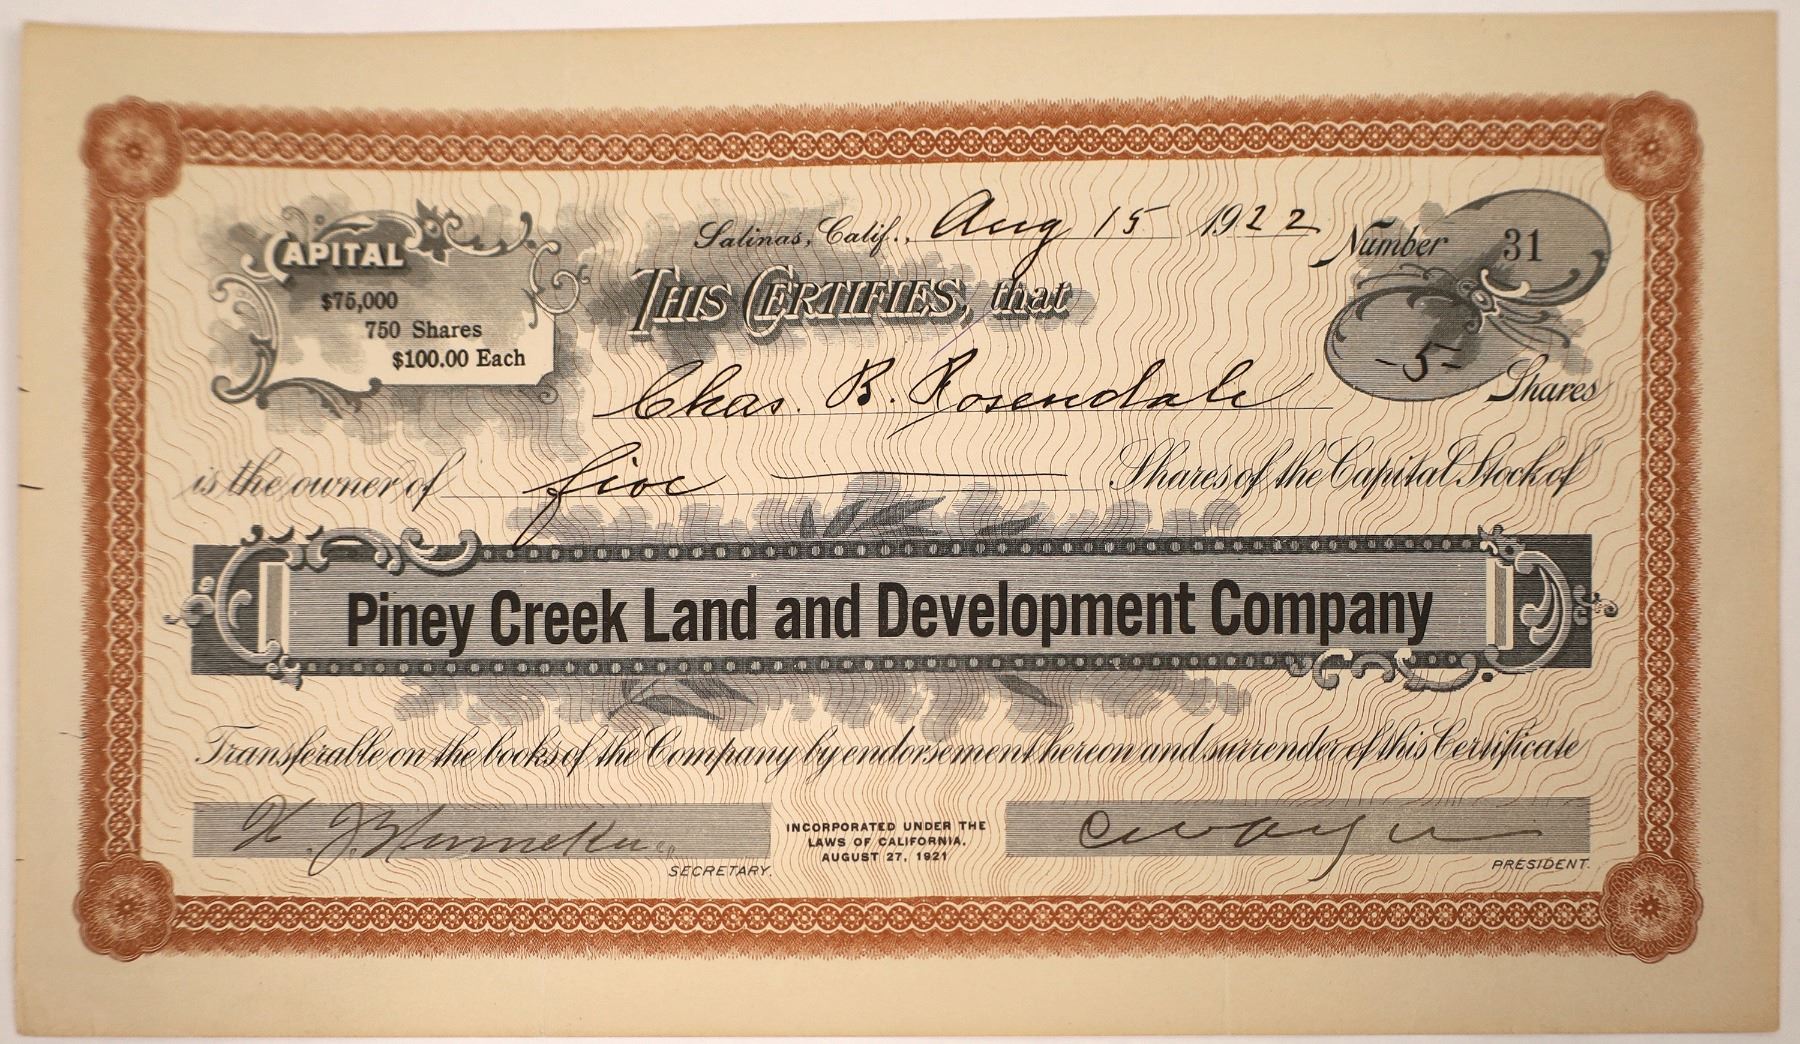 Salinas, Calif., Aug 15 1922 Number 31
CAPITAL
$75,000
750 Shares
$100.00 Each
THIS CERTIFIES, that
-5- Shares
Chas. B. Rosendale
is the owner of five Shares of the Capital Stock of
Piney Creek Land and Development Company
Transferable on the books of the Company by endorsement hereon and surrender of this Certificate
INCORPORATED UNDER THE
LAWS OF CALIFORNIA.
AUGUST 27, 1921
SECRETARY.
PRESIDENT.